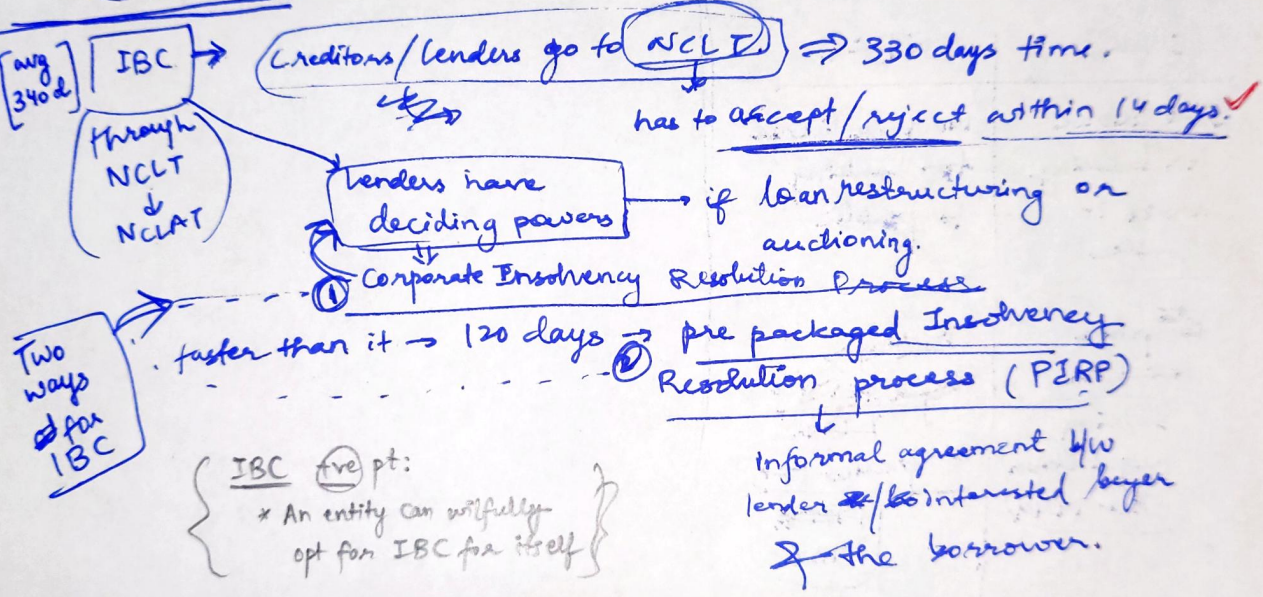 [avg 340d]
IBC → Creditors/lenders go to NCLT. ⇒ 330 days time.
↓
has to accept/reject within 14 days. ✓
through
NCLT
↓
NCLAT
lenders have
deciding powers → if loan restructuring or
auctioning.
⇓
① Corporate Insolvency Resolution Process
Two
ways
for
IBC
faster than it → 120 days → pre packaged Insolvency
② Resolution process (PIRP)
↓
informal agreement b/w
lender / interested buyer
& the borrower.
{ IBC +ve pt:
* An entity can wilfully
opt for IBC for itself }